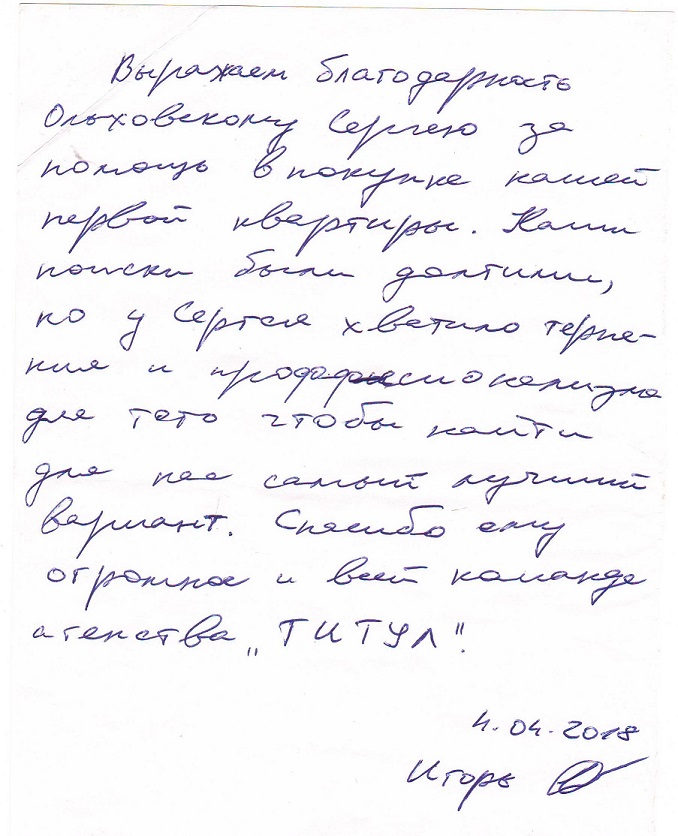 Выражаем благодарность
Ольховскому Сергею за
помощь в покупке нашей
первой квартиры. Наши
поиски были долгими,
но у Сергея хватило терпе-
ния и профессионализма
для того чтобы найти
для нас самый лучший
вариант. Спасибо ему
огромное и всей команде
агенства „ТИТУЛ".
4.04.2018
Игорь